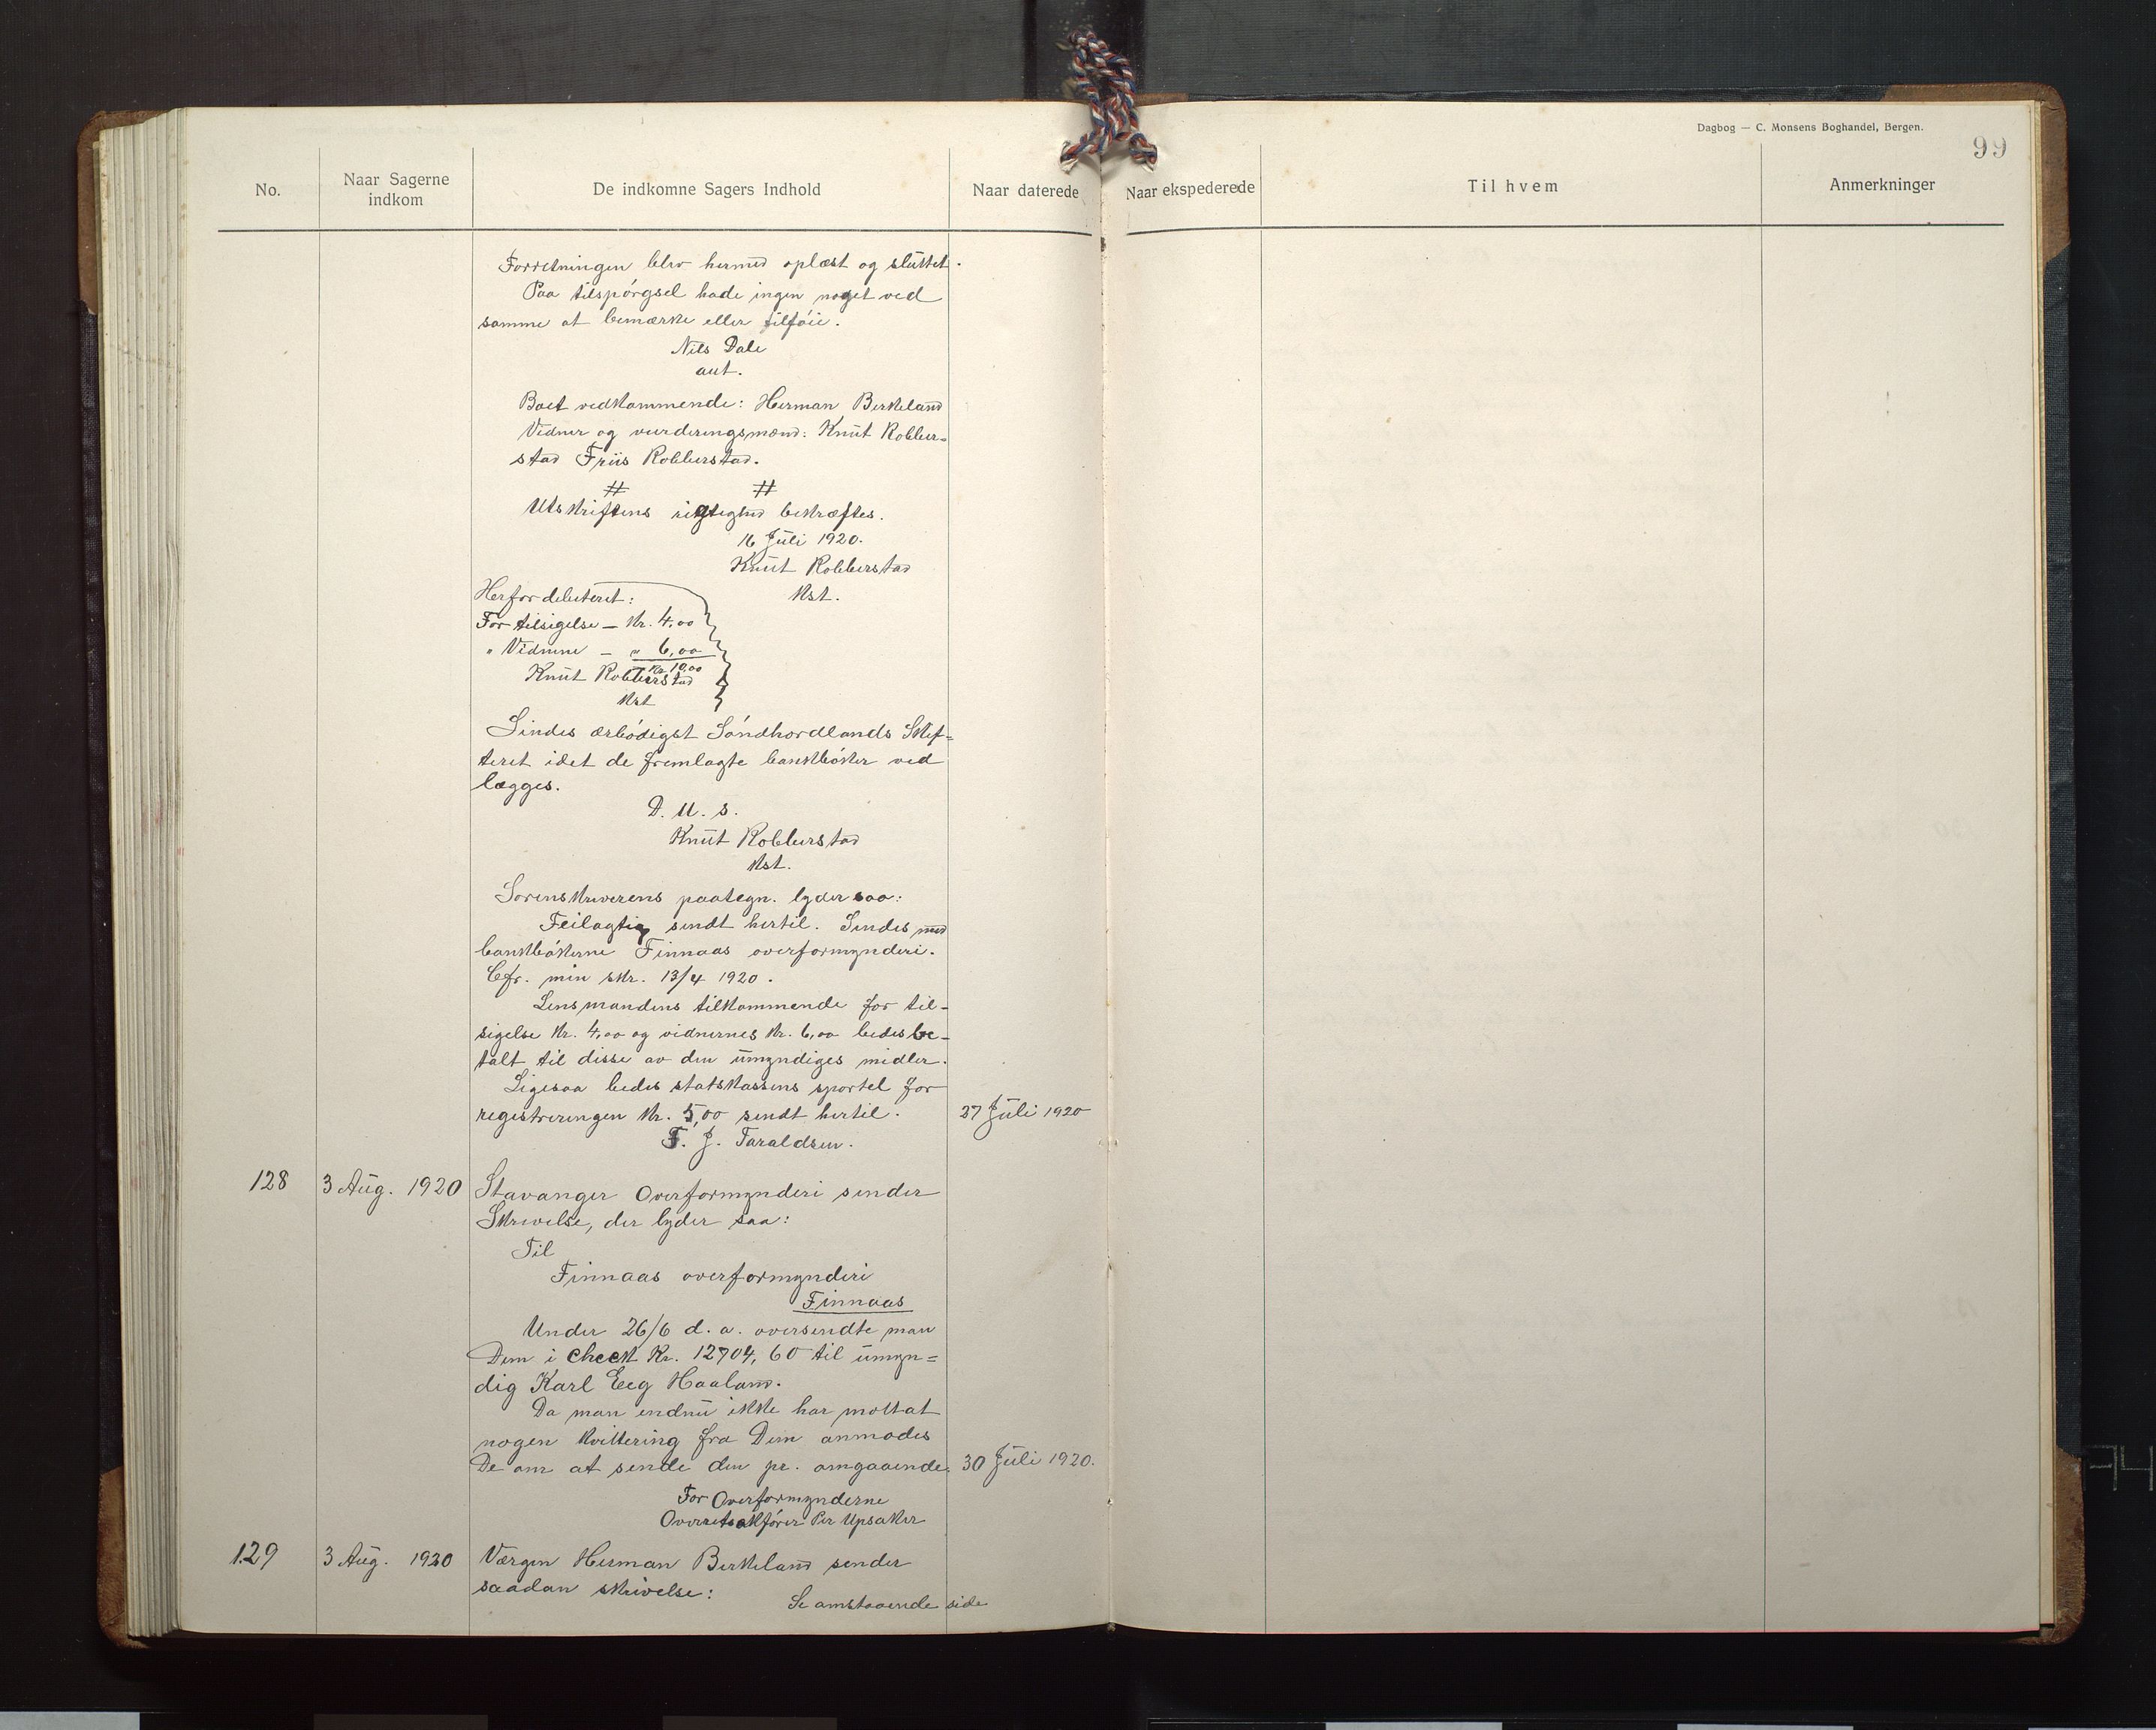 Dagbog — C. Monsens Boghandel, Bergen.
99
No.
Naar Sagerne indkom
De indkomne Sagers Indhold
Naar daterede
Naar ekspederede
Til hvem
Anmerkninger
Forretningen blev hermed oplæst og sluttet.
Paa tilspórgsel hade ingen noget ved
samme at bemærke eller tilfóie.
Nils Dale
aut.
Boet vedkommende: Herman Birkeland
Vidner og vurderingsmænd: Knut Robber=
stad Friis Robberstad.
# #
Utskriftens rigtighed bekræftes.
16 Juli 1920.
Knut Robberstad
Kst.
Herfor debiteret:
For tilsigelse — Kr. 4,00
" Vidnerne — " 6,00
Kr. 10,00
Knut Robberstad
Kst
Sendes ærbódigst Sóndhordlands Skif=
teret idet de fremlagte bankbóker ved
lægges.
D. U. S.
Knut Robberstad
Kst.
Sorenskriverens paategn. lyder saa:
Feilagtig sendt hertil. Sendes med
bankbókerne Finnaas overformynderi.
Cfr. min skr. 13/4 1920.
Lensmandens tilkommende for til-
sigelse Kr. 4,00 og vidnernes Kr. 6,00 bedes be-
talt til disse av den umyndiges midler.
Ligesaa bedes statskassens sportel for
registreringen Kr. 5,00 sendt hertil. 27 Juli 1920
F. J. Taraldsen.
128 3 Aug. 1920 Stavanger Overformynderi sender
Skrivelse, der lyder saa:
Til
Finnaas overformynderi
Finnaas
Under 26/6 d. a. oversendte man
Dem i check Kr. 12704,60 til umyn=
dig Karl Eeg Haaland.
Da man endnu ikke har mottat
nogen kvittering fra Dem anmodes
De om at sende den pr. omgaaende. 30 Juli 1920.
For Overformynderne
Overretssakfórer Per Upsaker
129 3 Aug. 1920 Værgen Herman Birkeland sender
saadan skrivelse:
Se omstaaende side